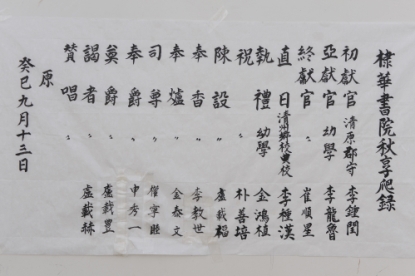 棣華書院秋享爬錄
初獻官 清原郡守 李鍾閏
亞獻官 幼學 李龍魯
終獻官 〃 崔順星
直日 清州鄕校典校 李種漢
執禮 幼學 金鴻植
祝 〃 朴善培
陳設 〃 盧載榴
奉香 〃 李敎世
奉爐 〃 金泰文
司尊 〃 崔寧
奉爵 〃 申秀一
奠爵 〃 盧載豊
謁者 〃
贊唱 〃 盧載
原
癸巳九月十三日